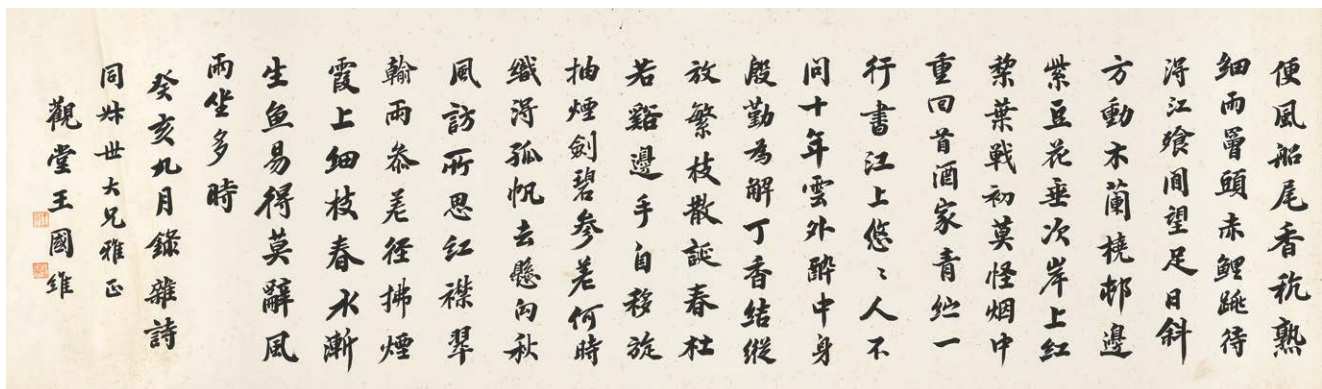 便風船尾香秔熟
細雨罾頭赤鯉跳待
淂江飡閒望足日斜
方動木蘭橈邨邊
紫豆花垂次岸上紅
棃葉戰初莫怪烟中
重回首酒家青紵一
行書江上悠〻人不
問十年雲外醉中身
殷勤為解丁香結縱
放繁枝散誕春杜
若谿邊手自移旋
抽煙劍碧參差何時
織淂孤帆去懸向秋
風訪所思紅襟翠
翰兩叅差徑拂煙
霞上細枝春水漸
生鱼易得莫辭風
雨坐多時
癸亥九月錄雜詩
同叔世大兄雅正
觀堂王國維